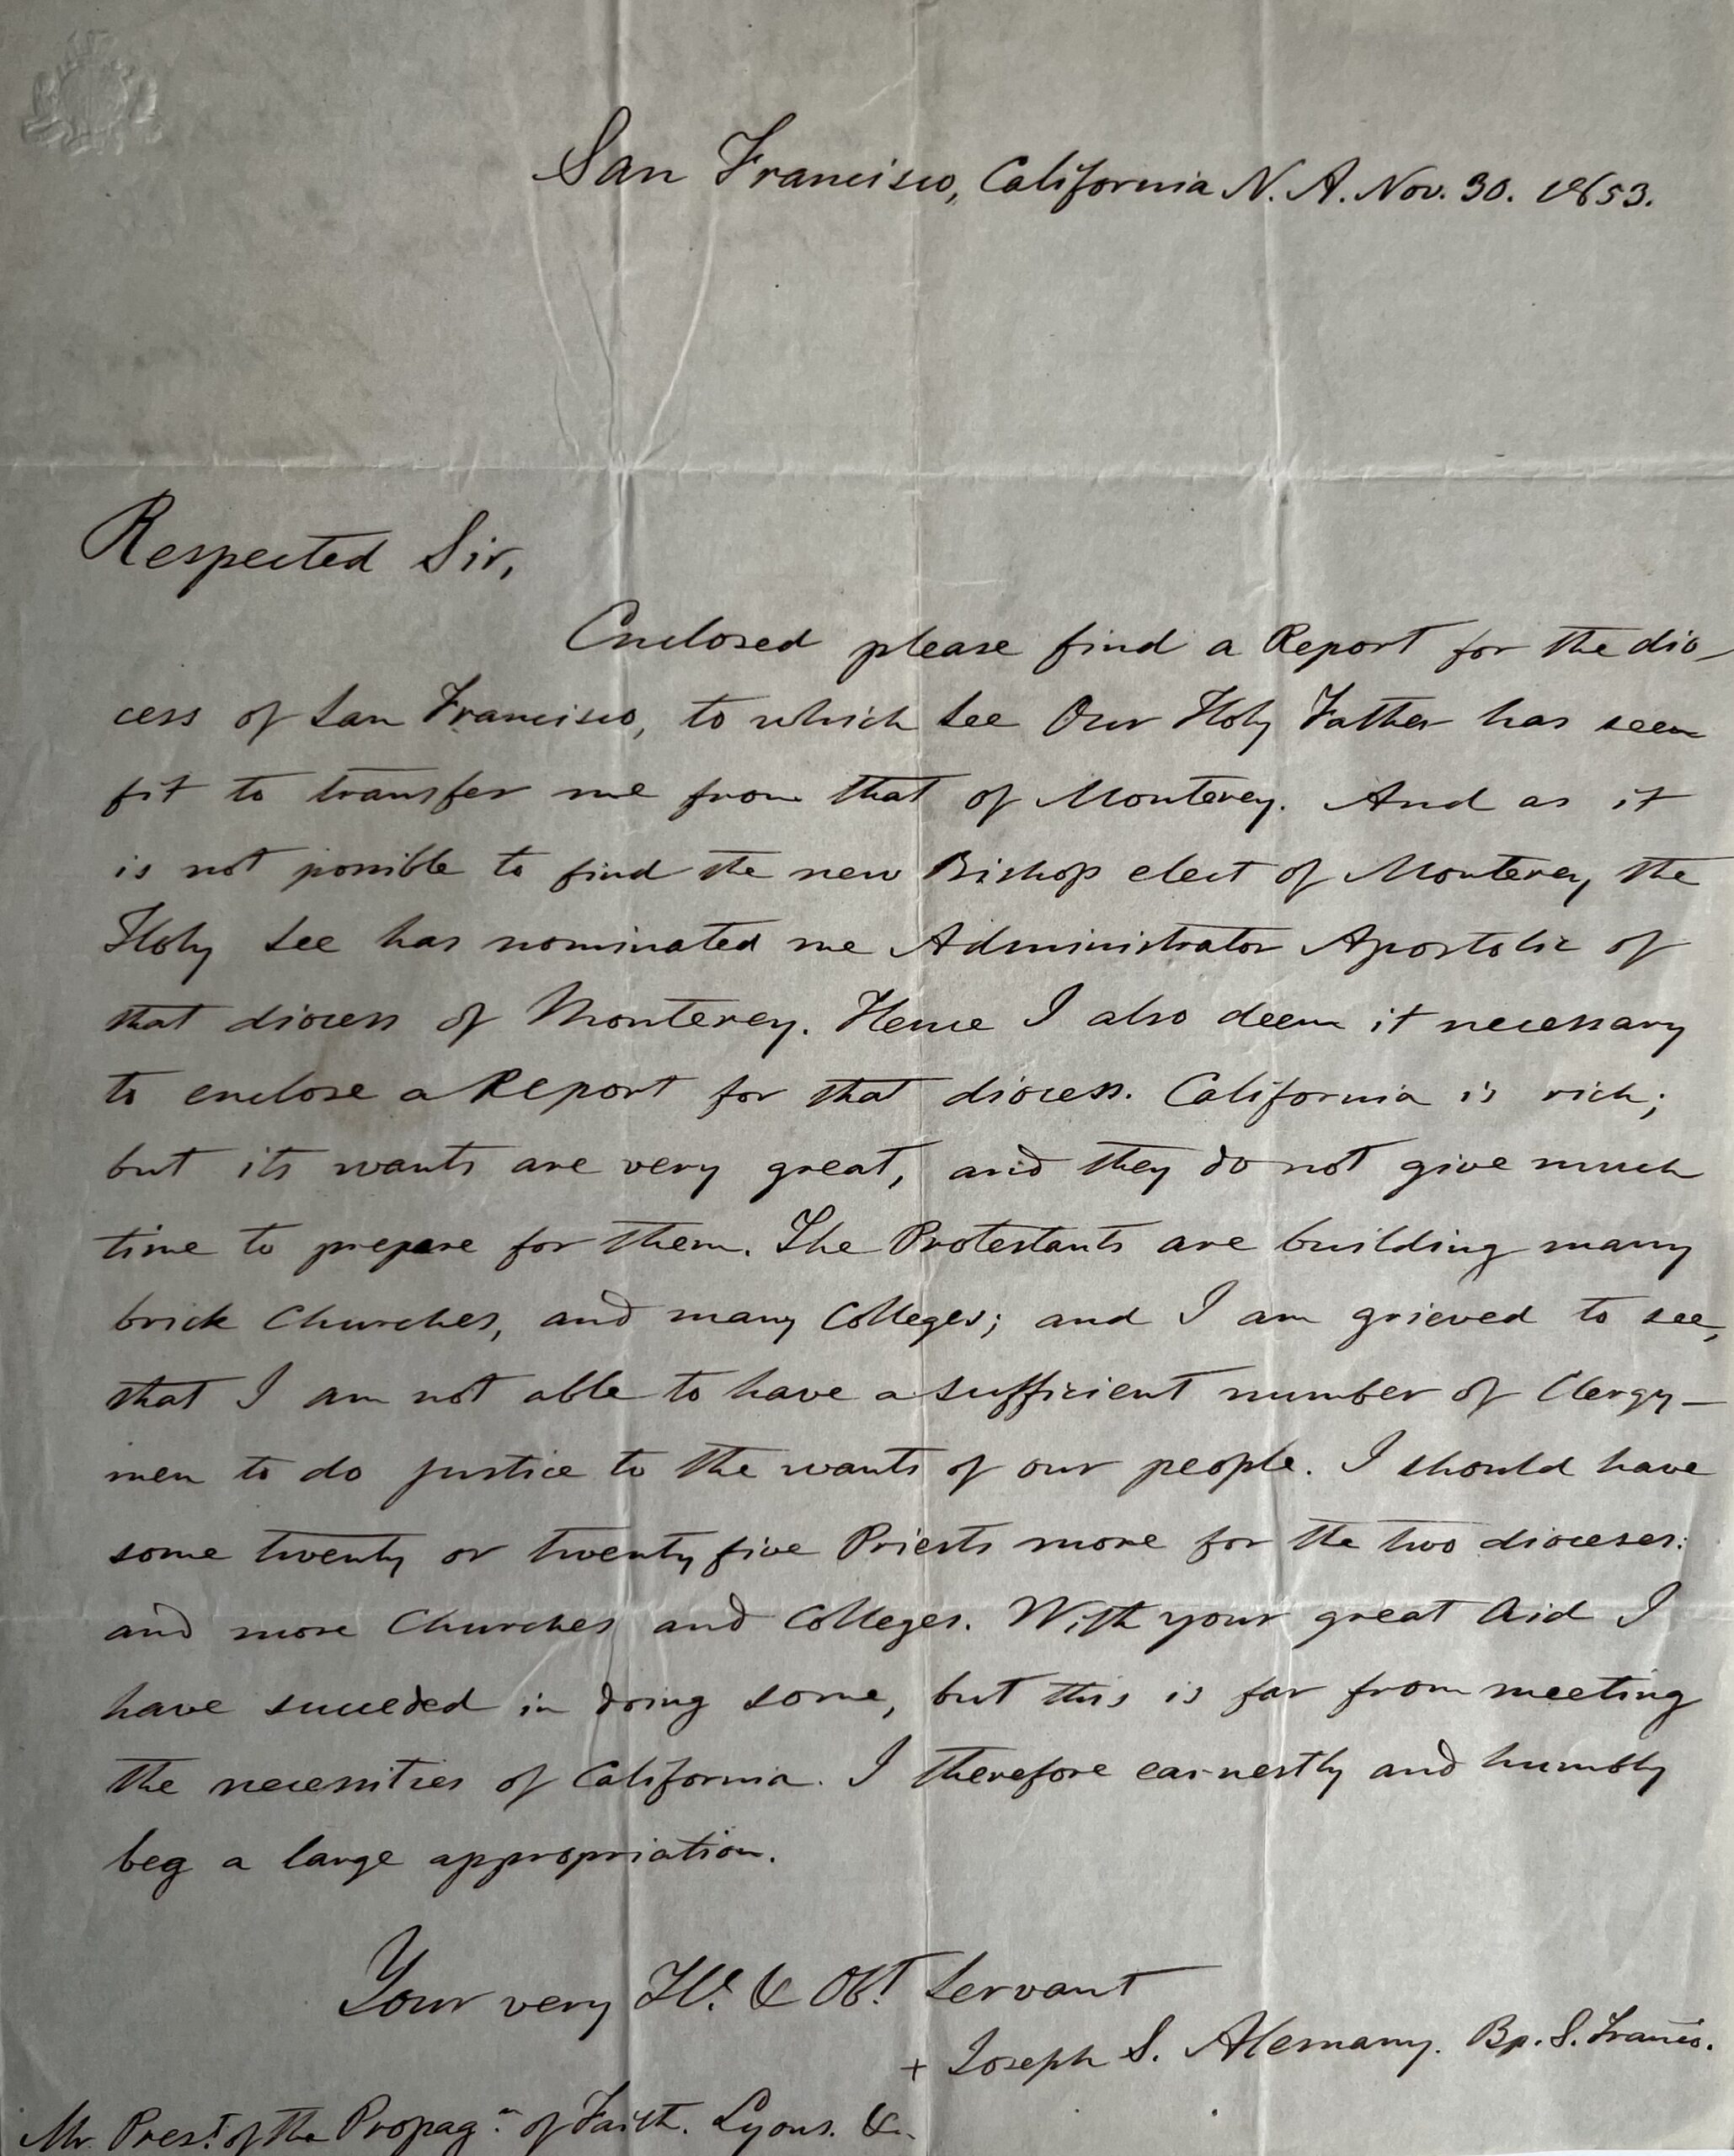 San Francisco, California N. A. Nov. 30. 1853.
Respected Sir,
Enclosed please find a Report for the dio-
cess of San Francisco, to which See Our Holy Father has seen
fit to transfer me from that of Monterey. And as it
is not possible to find the new Bishop elect of Monterey, the
Holy See has nominated me Administrator Apostolic of
that diocess of Monterey. Hence I also deem it necessary
to enclose a Report for that diocess. California is rich;
but its wants are very great, and they do not give much
time to prepare for them. The Protestants are building many
brick Churches, and many Colleges; and I am grieved to see,
that I am not able to have a sufficient number of Clergy-
men to do justice to the wants of our people. I should have
some twenty or twenty five Priests more for the two dioceses:
and more Churches and Colleges. With your great Aid I
have succeded in doing some, but this is far from meeting
the necessities of California. I therefore earnestly and humbly
beg a large appropriation.
Your very H. & Obt. Servant
+ Joseph S. Alemany. Bp. S. Franco.
Mr. Prest. of the Propagn. of Faith. Lyons. &c.